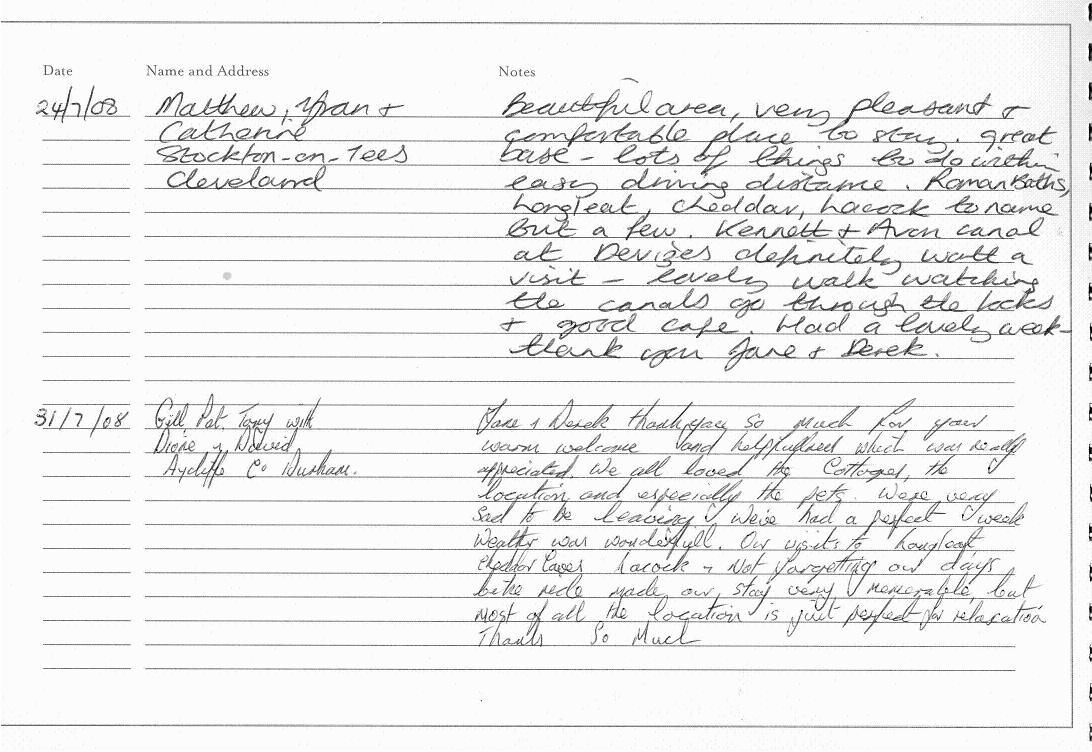 Date Name and Address Notes
24/7/08 Matthew, Yvan + Beautiful area, very pleasant +
Catherine comfortable place to stay. great
Stockton-on-Tees base - lots of things to do within
Cleveland easy driving distance. Roman Baths,
Longleat, Cheddar, Lacock to name
but a few. Kennett + Avon canal
at Devizes definitely watt a
visit - lovely walk watching
the canals go through the locks
+ good cafe. Had a lovely week -
thank you Jane + Derek.
31/7/08 Gill, Pat, Tony with Jane + Derek thank you so much for your
Diane + David warm welcome and helpfullness which was really
Aycliffe Co Durham. appreciated. We all loved the Cottages, the
location and especially the pets. Were very
sad to be leaving, Weve had a perfect week
Weather was wonderfull. Our visits to Longleat
Cheddar Caves Lacock + Not forgetting our days
bike ride made our stay very memorable, but
most of all the location is just perfect for relaxation
Thanks So Much